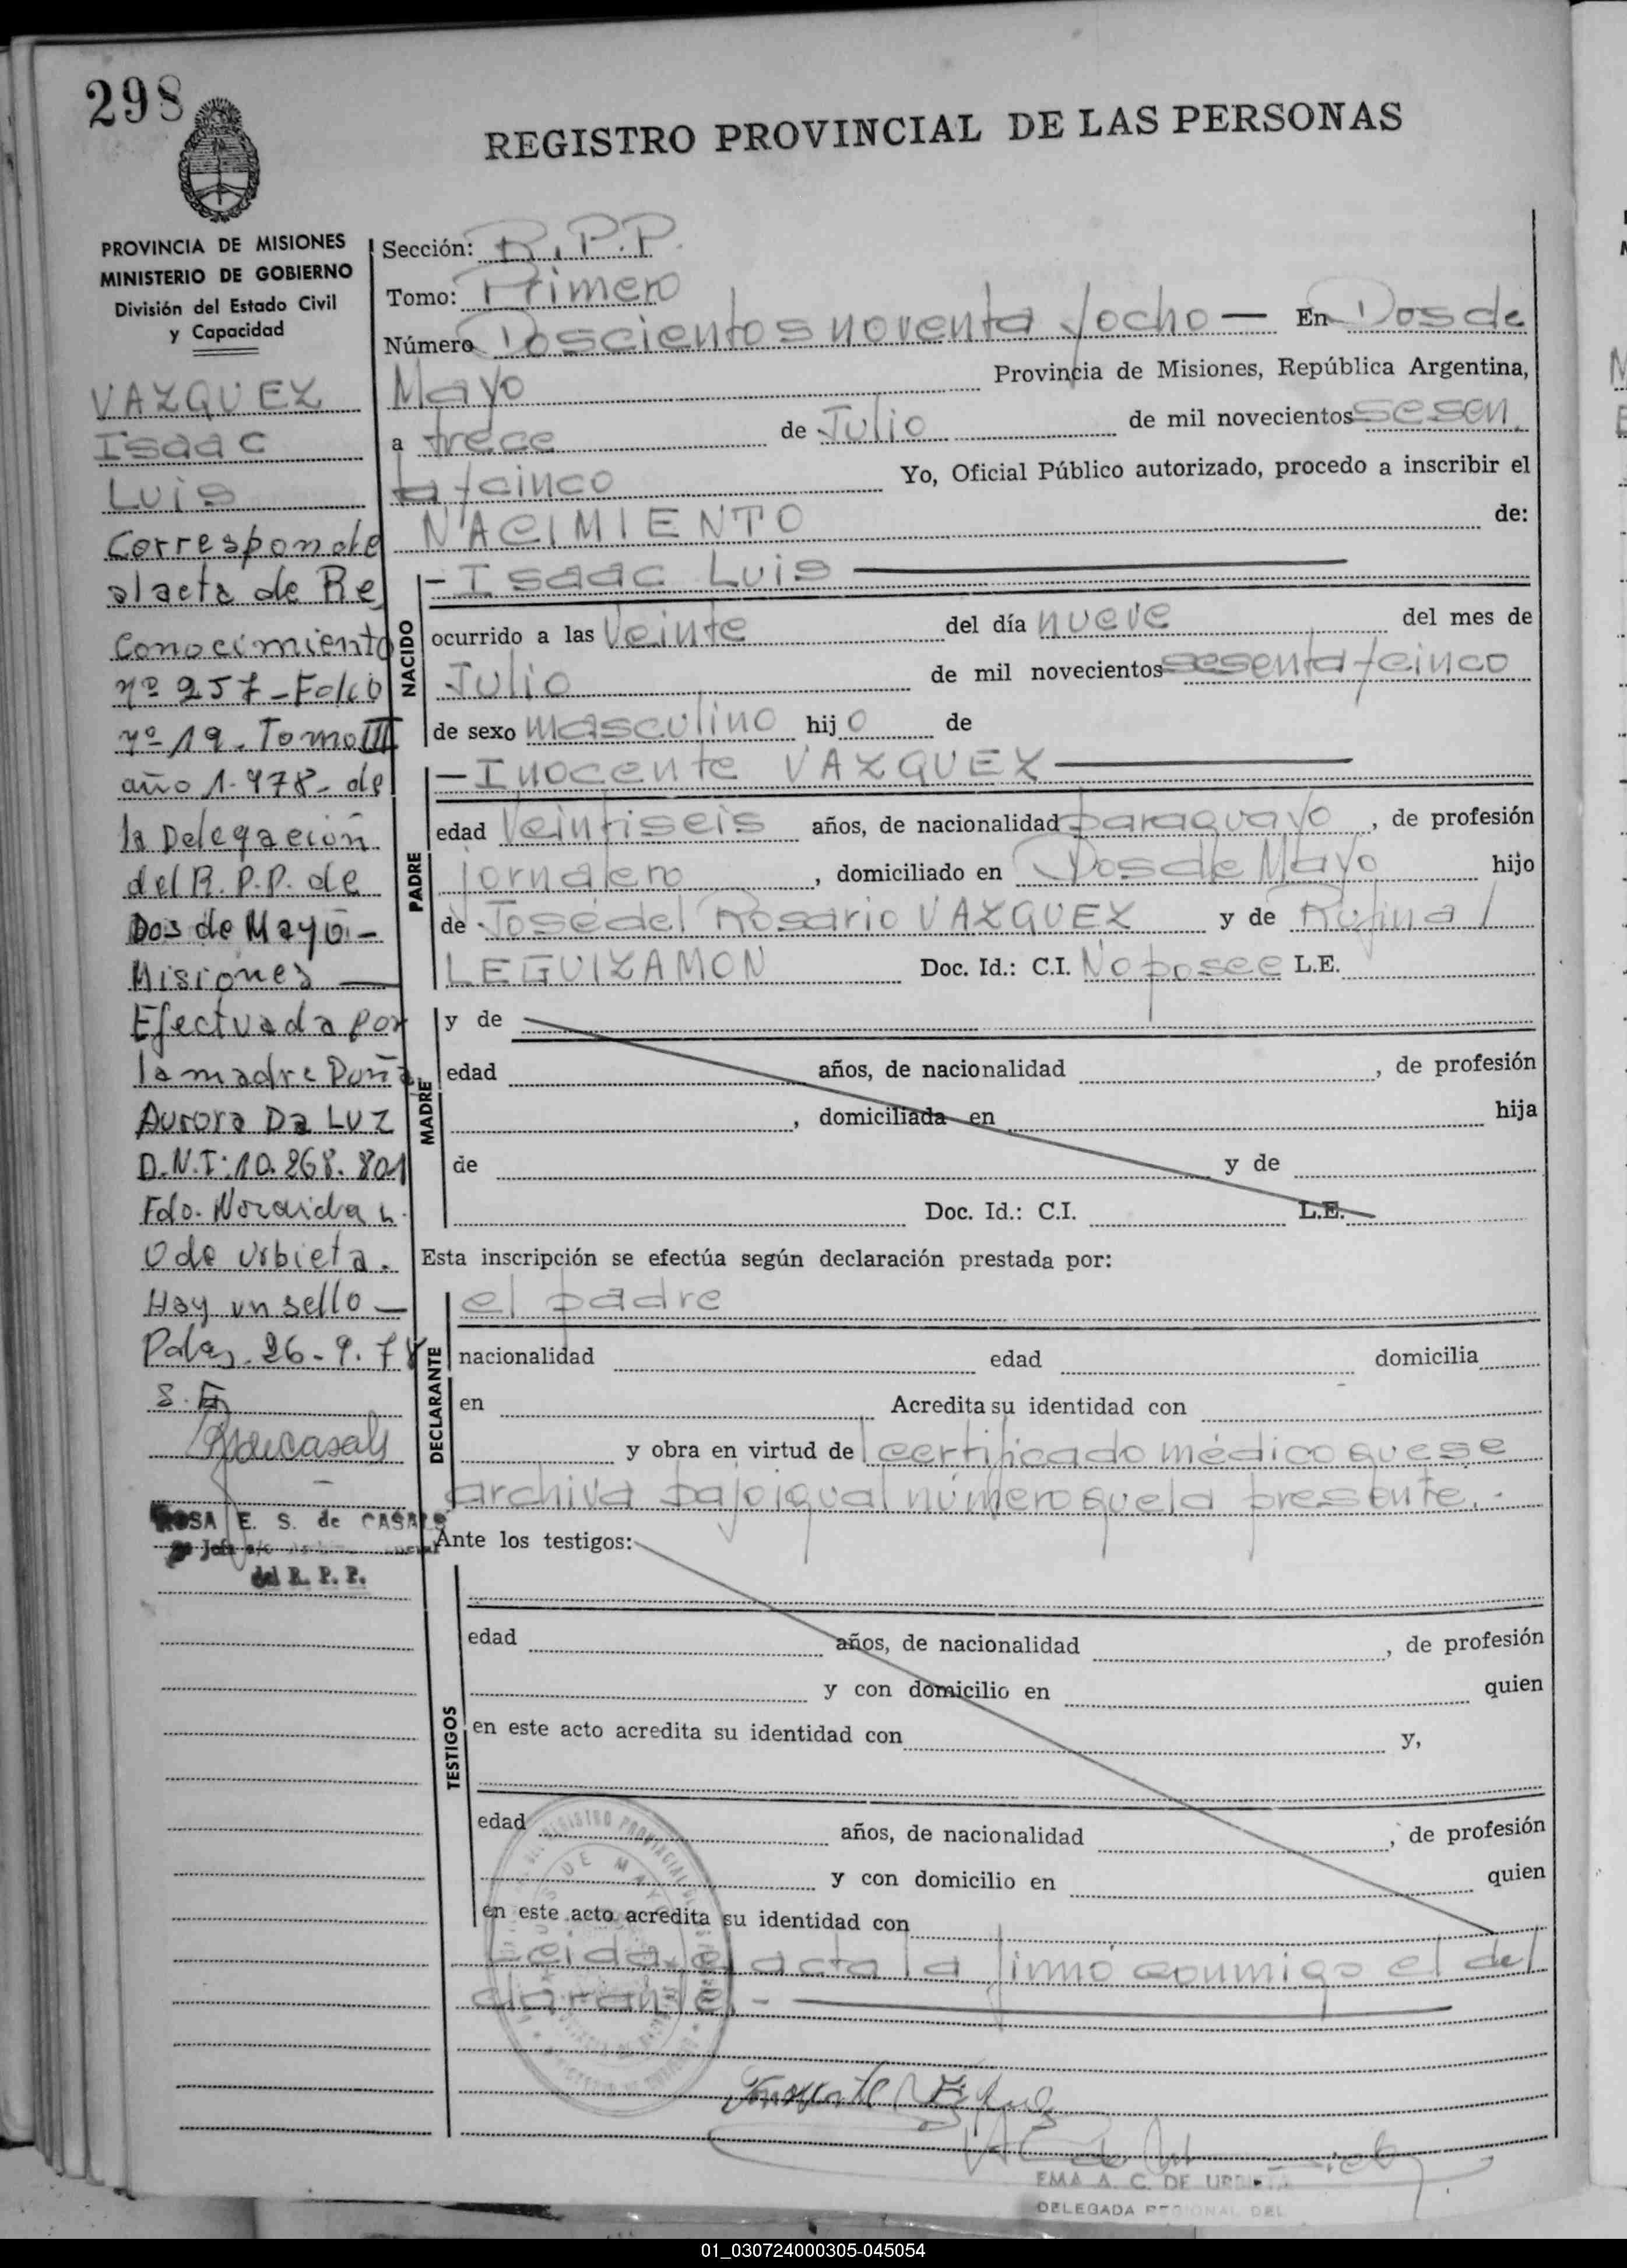 298
REGISTRO PROVINCIAL DE LAS PERSONAS
PROVINCIA DE MISIONES
MINISTERIO DE GOBIERNO
División del Estado Civil
y Capacidad
VAZQUEZ
Isaac
Luis
Corresponde
al acta de Re
conocimiento
nº 257-Folio
nº 19. Tomo III
año 1.978- de
la Delegación
del R.P.P. de
Dos de Mayo.-
Misiones —
Efectuada por
la madre Doña
Aurora Da Luz
D.N.I:10.268.801
Fdo. Noraida
O de Urbieta.
Hay un sello —
26-9-78
ROSA E. S. de CASALS
del R. P. P.
Sección: R.P.P.
Tomo: Primero
Número Doscientos noventa y ocho — En Dos de
Mayo Provincia de Misiones, República Argentina,
a trece de Julio de mil novecientos sesen
ta y cinco Yo, Oficial Público autorizado, procedo a inscribir el
NACIMIENTO de:
NACIDO
— Isaac Luis —
ocurrido a las veinte del día nueve del mes de
Julio de mil novecientos sesenta y cinco
de sexo masculino hijo de
PADRE
— Inocente VAZQUEZ —
edad veintiseis años, de nacionalidad paraguayo, de profesión
jornalero, domiciliado en Dos de Mayo hijo
de José del Rosario VAZQUEZ y de Rufina
LEGUIZAMON Doc. Id.: C.I. No posee L.E.
MADRE
y de
edad años, de nacionalidad , de profesión
, domiciliada en hija
de y de
Doc. Id.: C.I. L.E.
Esta inscripción se efectúa según declaración prestada por:
DECLARANTE
el padre
nacionalidad edad domicilia
en Acredita su identidad con
y obra en virtud del certificado médico que se
archiva bajo igual número que la presente.-
Ante los testigos:
TESTIGOS
edad años, de nacionalidad , de profesión
y con domicilio en quien
en este acto acredita su identidad con y,
edad años, de nacionalidad , de profesión
y con domicilio en quien
en este acto acredita su identidad con
Leida el acta la firmó conmigo el de
clarante.-
EMA A. C. DE URBIETA
DELEGADA REGIONAL DEL
01_030724000305-045054